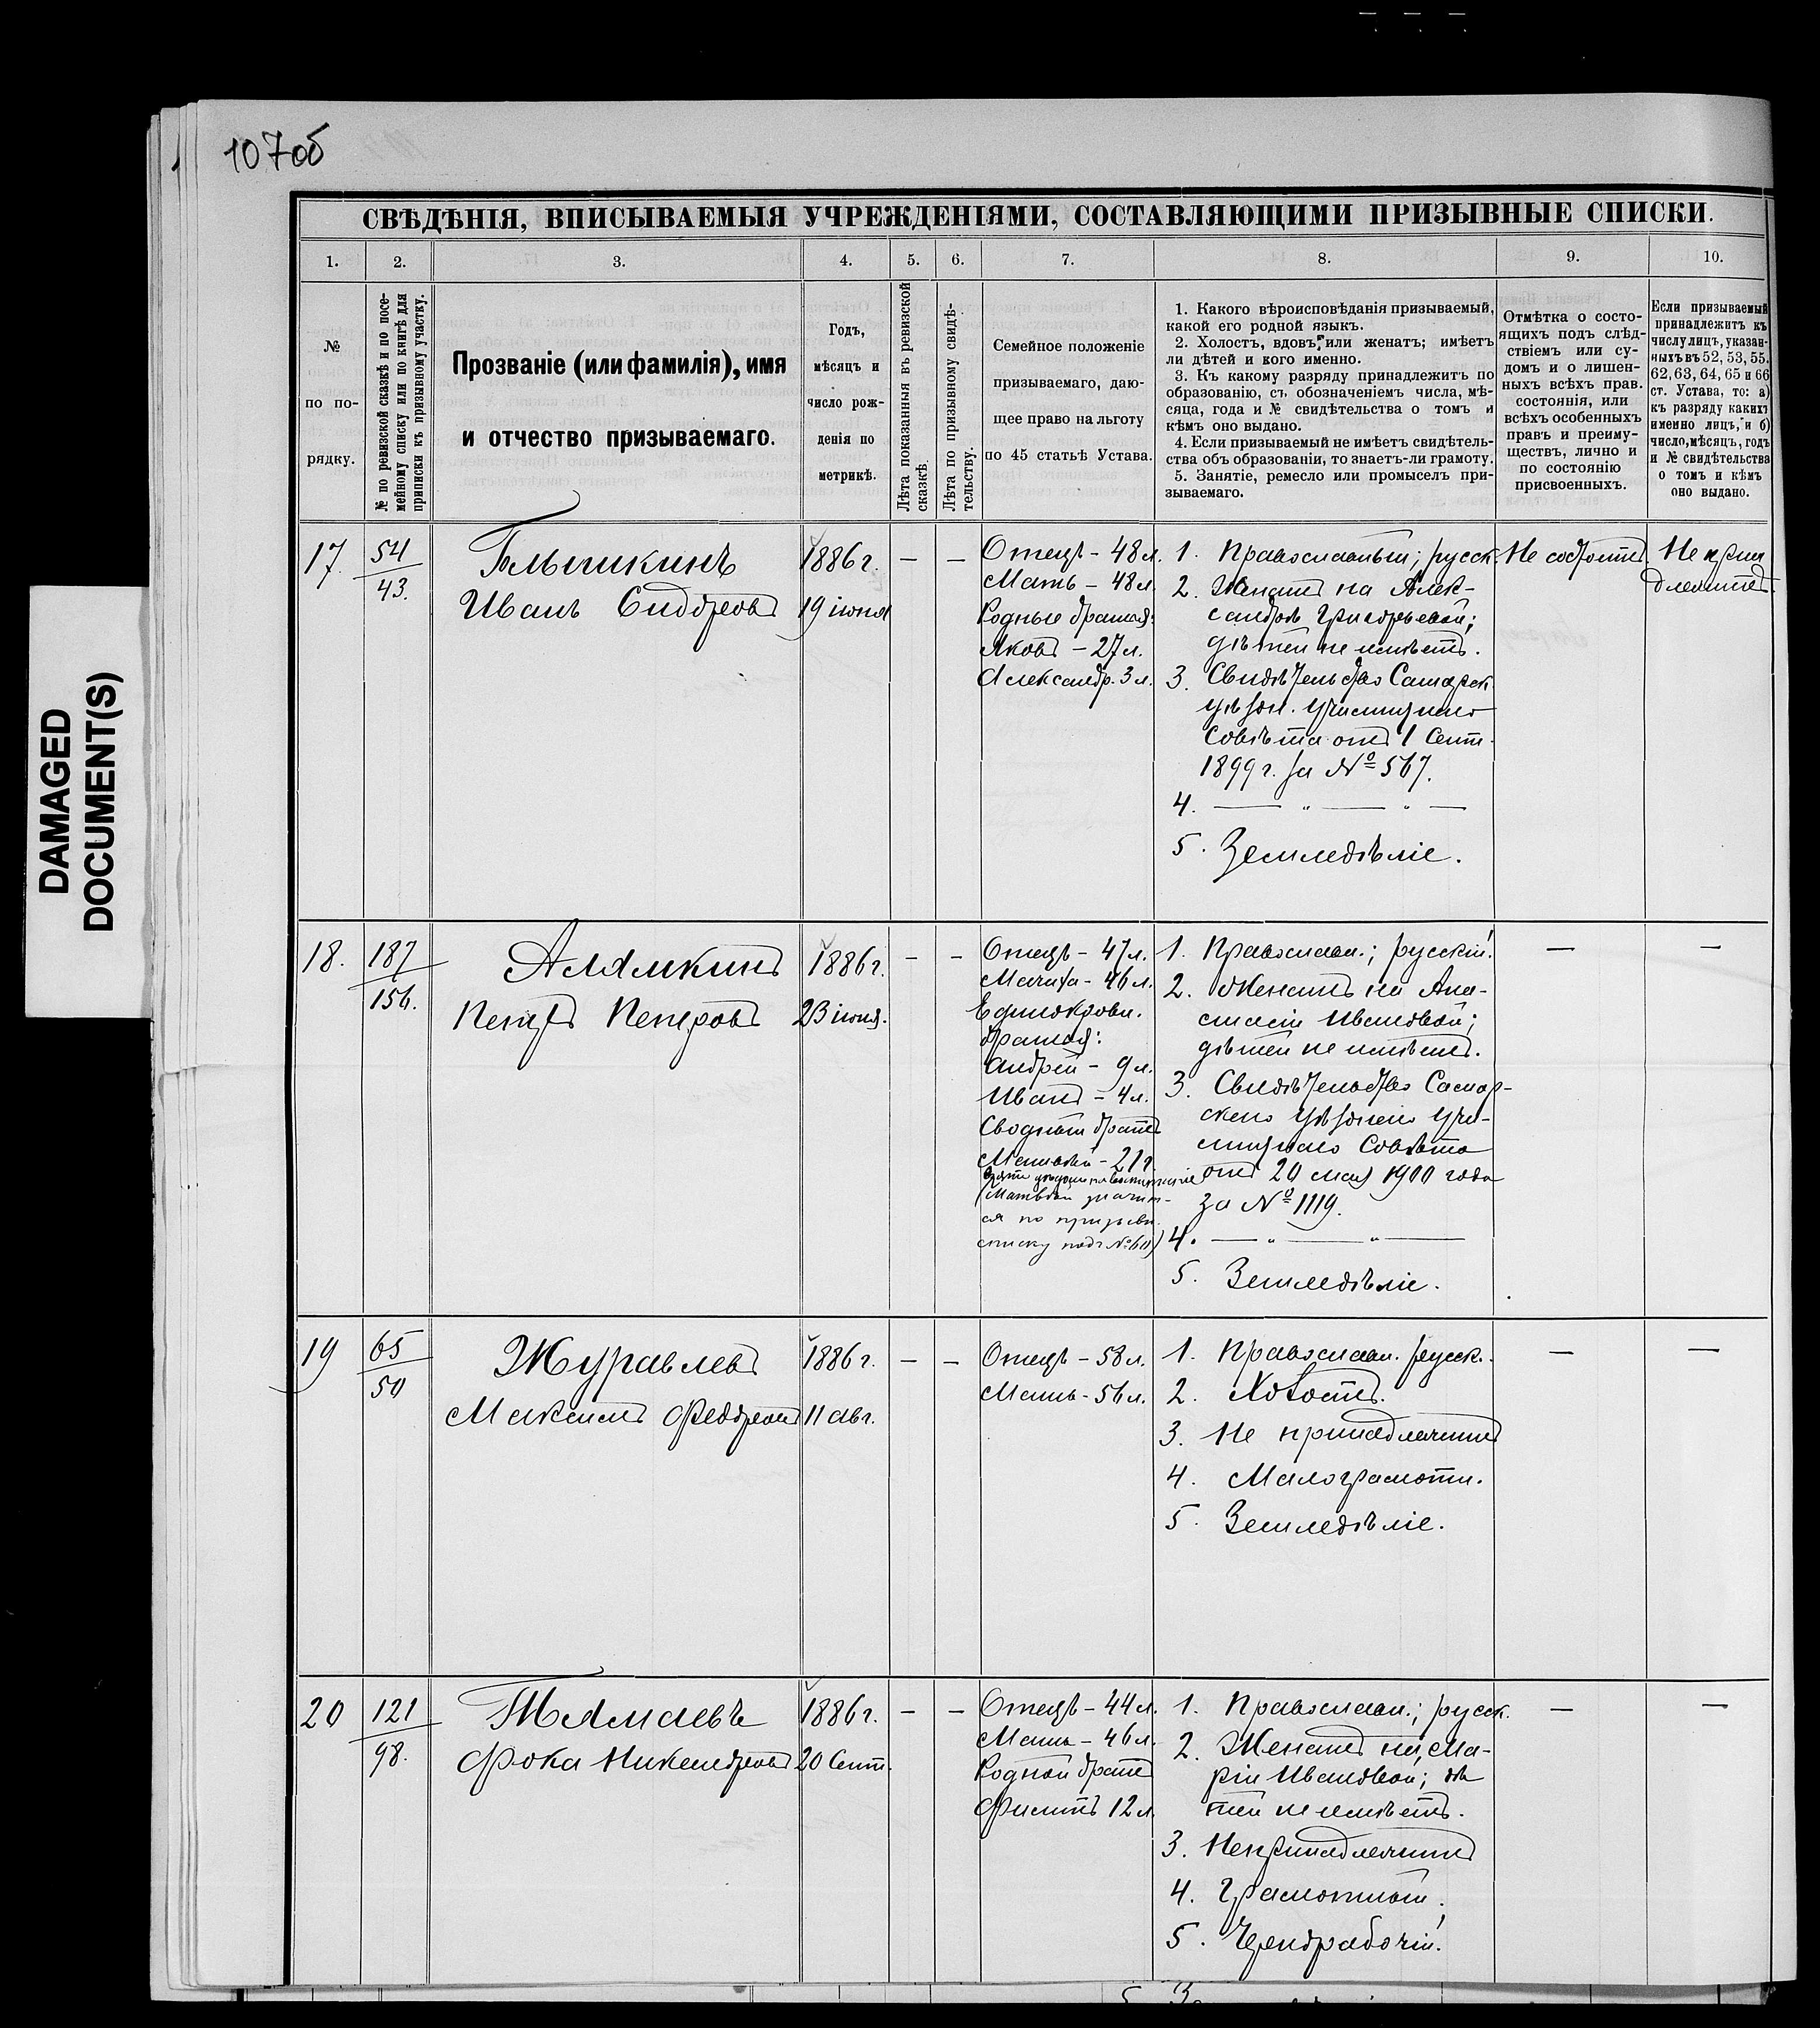 107об
DAMAGED
DOCUMENT(S)
СВѢДѢНІЯ, ВПИСЫВАЕМЫЯ УЧРЕЖДЕНІЯМИ, СОСТАВЛЯЮЩИМИ ПРИЗЫВНЫЕ СПИСКИ.
1. 2. 3. 4. 5. 6. 7. 8. 9. 10.
№
по по-
рядку.
№ по ревизской сказкѣ и по посе-
мейному списку или по книгѣ для
приписки къ призывному участку.
Прозваніе (или фамилія), имя
и отчество призываемаго.
Годъ,
мѣсяцъ и
число рож-
денія по
метрикѣ.
Лѣта показанныя въ ревизской
сказкѣ.
Лѣта по призывному свидѣ-
тельству.
Семейное положеніе
призываемаго, даю-
щее право на льготу
по 45 статьѣ Устава.
1. Какого вѣроисповѣданія призываемый,
какой его родной языкъ.
2. Холостъ, вдовъ, или женатъ; имѣетъ
ли дѣтей и кого именно.
3. Къ какому разряду принадлежитъ по
образованію, съ обозначеніемъ числа, мѣ-
сяца, года и № свидѣтельства о томъ и
кѣмъ оно выдано.
4. Если призываемый не имѣетъ свидѣтель-
ства объ образованіи, то знаетъ-ли грамоту.
5. Занятіе, ремесло или промыселъ при-
зываемаго.
Отмѣтка о состо-
ящихъ подъ слѣд-
ствіемъ или су-
домъ и о лишен-
ныхъ всѣхъ прав.
состоянія, или
всѣхъ особенныхъ
правъ и преиму-
ществъ, лично и
по состоянію
присвоенныхъ.
Если призываемый
принадлежитъ къ
числу лицъ, указан-
ныхъ въ 52, 53, 55,
62, 63, 64, 65 и 66
ст. Устава, то: а)
къ разряду какихъ
именно лицъ, и б)
число, мѣсяцъ, годъ
и № свидѣтельства
о томъ и кѣмъ
оно выдано.
17.
54
43.
Иванъ Сидоровъ
1886 г.
19 іюня
—
—
Отецъ - 48 л.
Мать - 48 л.
Родные братья:
Яковъ - 27 л.
Александр. 3 л.
1. Православный; русск.
2. Женатъ на Алек-
сандрѣ Григорьевой;
дѣтей не имѣетъ.
3. Свидѣтельство Самарск.
уѣздн. Училищнаго
Совѣта отъ 1 Сент.
1899 г. за № 567.
4. — " — " —
5. Земледѣліе.
Не состоитъ
Не прина
длежитъ.
18.
187
156.
Алямкинъ
Петръ Петровъ
1886 г.
23 іюня.
-
-
Отецъ - 47 л.
Мачиха - 46 л.
Единокровн.
братья:
Андрей - 9 л.
Иванъ - 4 л.
Сводный братъ
Матвѣй - 21 г.
(Матвѣй значит-
ся по призывн.
списку подъ № 60)
1. Православн.; русскій.
2. Женатъ на Ана-
стасіи Ивановой;
дѣтей не имѣетъ.
3. Свидѣтельство Самар-
скаго уѣзднаго Учи-
лищнаго Совѣта
отъ 20 мая 1900 года
за № 1119.
4. — " — " —
5. Земледѣліе.
—
—
19
65
50
Журавлевъ
Максимъ Федоровъ
1886 г.
11 авг.
—
—
Отецъ - 58 л.
Мать - 56 л.
1. Православн. русск.
2. Холостъ.
3. Не принадлежитъ
4. Малограмотн.
5. Земледѣліе.
—
—
20
121
98.
Тямаевъ
Фока Никандровъ
1886 г.
20 Сент.
—
—
Отецъ - 44 л.
Мать - 46 л.
Родной братъ
Филиппъ 12 л.
1. Православн.; русск.
2. Женатъ на Ма-
ріи Ивановой; дѣ
тей не имѣетъ.
3. Непринадлежитъ
4. Грамотный.
5. Чернорабочій.
—
—